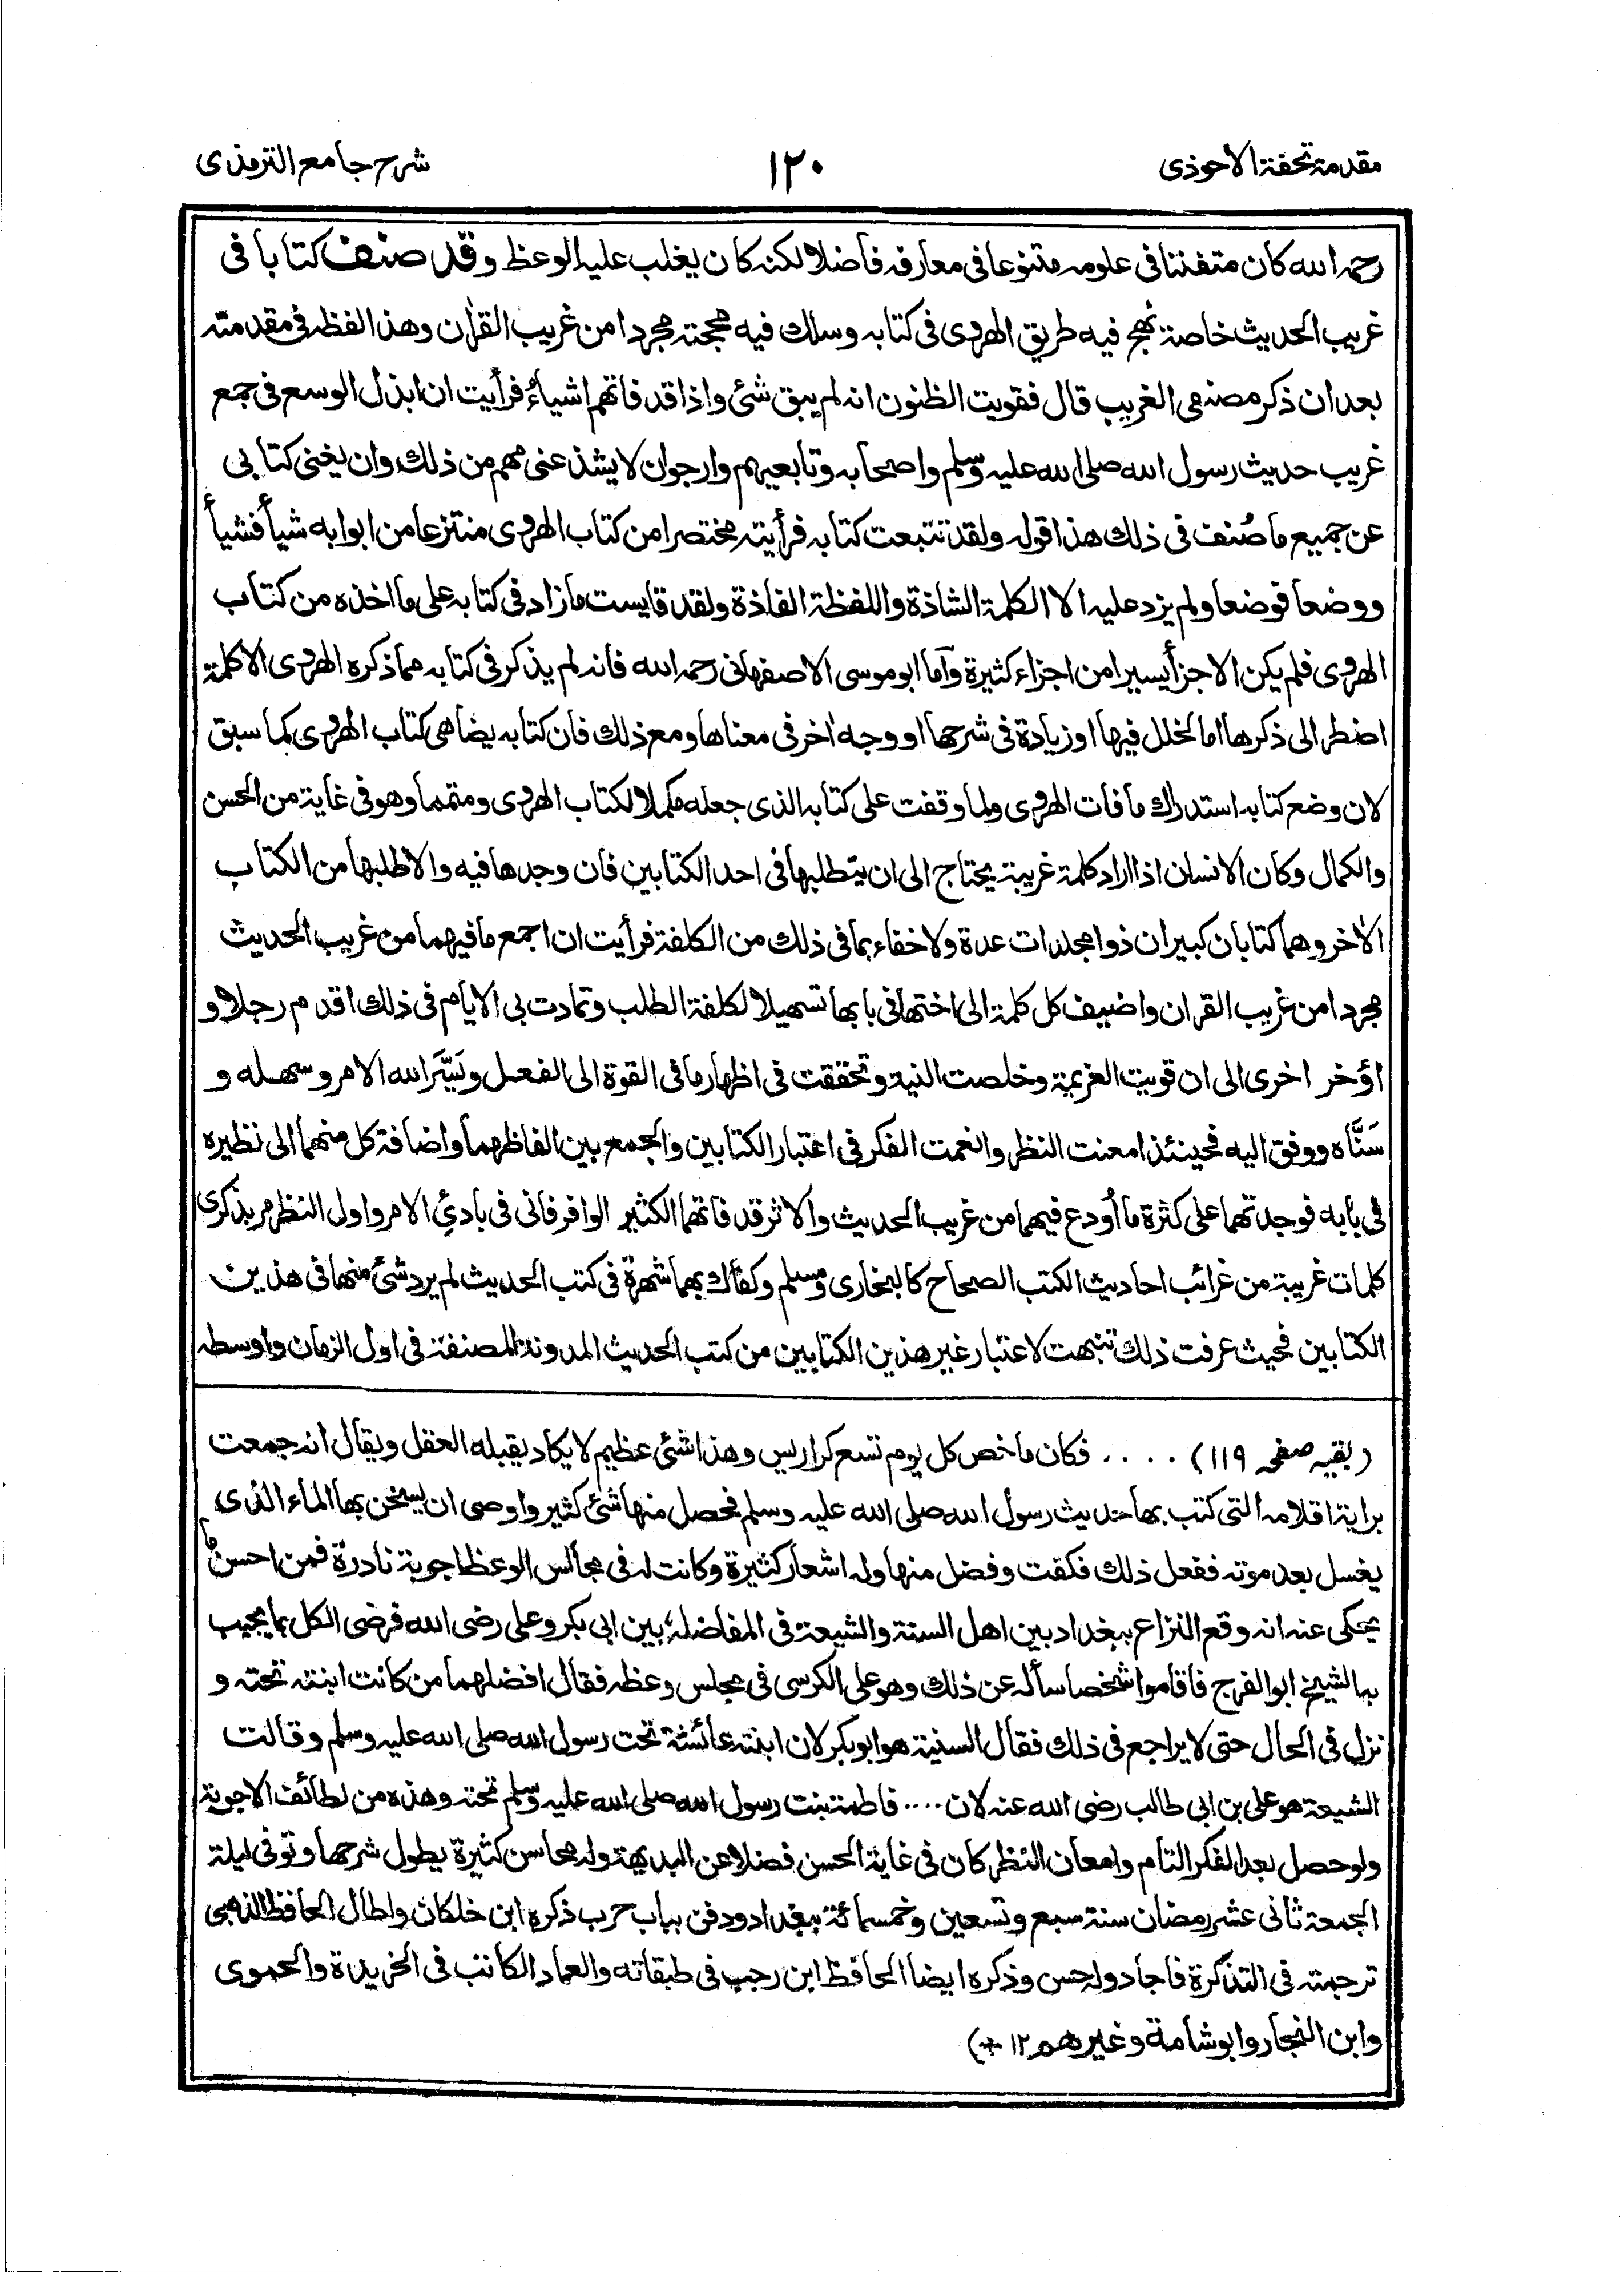 مقدمة تحفة الاحوذى ١٢٠ شرح جامع الترمذى
رحمه الله كان متفننا فى علومه متنوعا فى معارفه فاضلا لكنه كان يغلب عليه الوعظ وقد صنف كتابا فى
غريب الحديث خاصة نهج فيه طريق الهروى فى كتابه وسلك فيه محجته مجردا من غريب القرأن وهذا لفظه فى مقدمته
بعد ان ذكر مصنفى الغريب قال فقويت الظنون انه لم يبق شئ واذا قد فاتهم اشياءُ فرأيت ان ابذل الوسع فى جمع
غريب حديث رسول الله صلى الله عليه وسلم واصحابه وتابعيهم وارجو ان لا يشذ عنى مهم من ذلك وان يغنى كتابى
عن جميع ما صُنف فى ذلك هذا قوله ولقد تتبعت كتابه فرأيته مختصرا من كتاب الهروى منتزعا من ابوابه شيأ فشيأ
ووضعا فوضعا ولم يزد عليه الا الكلمة الشاذة واللفظة الفاذة ولقد قايست ما زاد فى كتابه على ما اخذه من كتاب
الهروى فلم يكن الا جزأ يسيرا من اجزاء كثيرة وآما ابو موسى الاصفهانى رحمه الله فانه لم يذكر فى كتابه مما ذكره الهروى الا كلمة
اضطر الى ذكرها اما لخلل فيها او زيادة فى شرحها او وجه أخر فى معناها ومع ذلك فان كتابه يضاهى كتاب الهروى كما سبق
لان وضع كتابه استدراك ما فات الهروى ولما وقفت على كتابه الذى جعله مكملا لكتاب الهروى ومتمما وهو فى غاية من الحسن
والكمال وكان الانسان اذا اراد كلمة غريبة يحتاج الى ان يتطلبها فى احد الكتابين فان وجدها فيه والا طلبها من الكتاب
الأخر وهما كتابان كبيران ذوا مجلدات عدة ولا خفاء بما فى ذلك من الكلفة فرأيت ان اجمع ما فيهما من غريب الحديث
مجردا من غريب القران واضيف كل كلمة الى اختها فى بابها تسهيلا لكلفة الطلب وتمادت بى الايام فى ذلك اقدم رجلا و
اؤخر اخرى الى ان قويت العزيمة وخلصت النية وتحققت فى اظهار ما فى القوة الى الفعل ويَسَّرَ الله الامر وسهله و
سَنَّاه ووفق اليه فحينئذ امعنت النظر وانعمت الفكر فى اعتبار الكتابين والجمع بين الفاظهما واضافة كل منهما الى نظيره
فى بابه فوجدتهما على كثرة ما أودع فيهما من غريب الحديث والاثر قد فاتهما الكثير الوافر فانى فى بادئِ الامر واول النظر مر بذكرى
كلمات غريبة من غرائب احاديث الكتب الصحاح كالبخارى ومسلم وكفاك بهما شهرة فى كتب الحديث لم يرد شئ منها فى هذين
الكتابين فحيث عرفت ذلك تنبهت لاعتبار غير هذين الكتابين من كتب الحديث المدونة المصنفة فى اول الزمان واوسطه
(بقيه صفحه ١١٩) .... فكان ما خص كل يوم تسع كراريس وهذا شئ عظيم لا يكاد يقبله العقل ويقال انه جمعت
براية اقلامه التى كتب بها حديث رسول الله صلى الله عليه وسلم فحصل منها شئ كثير واوصى ان يسخن بها الماء الذى
يغسل بعد موته ففعل ذلك فكفت وفضل منها وله اشعار كثيرة وكانت له فى مجالس الوعظ اجوبة نادرة فمن احسن ما
يحكى عنه انه وقع النزاع ببغداد بين اهل السنة والشيعة فى المفاضلة بين ابى بكر وعلى رضى الله فرضى الكل بما يجيب
به الشيخ ابو الفرج فاقاموا شخصا سأله عن ذلك وهو على الكرسى فى مجلس وعظه فقال افضلهما من كانت ابنته تحته و
نزل فى الحال حتى لا يراجع فى ذلك فقال السنية هو ابو بكر لان ابنته عائشة تحت رسول الله صلى الله عليه وسلم وقالت
الشيعة هو على بن ابى طالب رضى الله عنه لان .... فاطمة بنت رسول الله صلى الله عليه وسلم تحته وهذه من لطائف الاجوبة
ولو حصل بعد الفكر التام وامعان النظر كان فى غاية الحسن فضلا عن البديهة وله محاسن كثيرة يطول شرحها وتوفى ليلة
الجمعة ثانى عشر رمضان سنة سبع وتسعين وخمسمائة ببغداد ودفن بباب حرب ذكره ابن خلكان واطال الحافظ الذهبى
ترجمته فى التذكرة فاجاد وله حسن وذكره ايضا الحافظ ابن رجب فى طبقاته والعماد الكاتب فى الخريدة والحموى
وابن النجار وابو شامة وغيرهم ١٢ *)